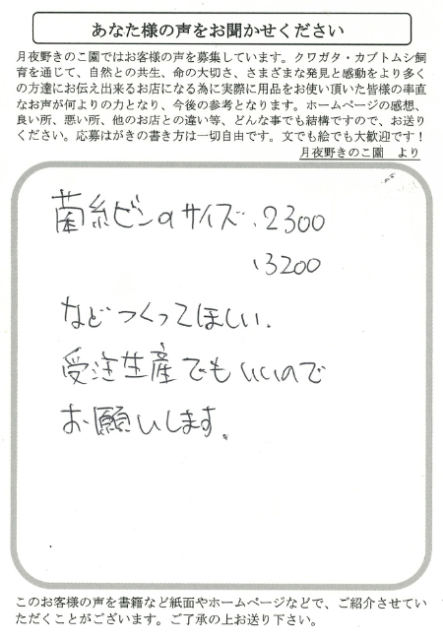 あなた様の声をお聞かせください
月夜野きのこ園ではお客様の声を募集しています。クワガタ・カブトムシ飼
育を通じて、自然との共生、命の大切さ、さまざまな発見と感動をより多く
の方達にお伝え出来るお店になる為に実際に用品をお使い頂いた皆様の率直
なお声が何よりの力となり、今後の参考となります。ホームページの感想、
良い所、悪い所、他のお店との違い等、どんな事でも結構ですので、お送り
ください。応募はがきの書き方は一切自由です。文でも絵でも大歓迎です！
月夜野きのこ園 より
菌糸ビンのサイズ、2300
、3200
などつくってほしい。
受注生産でもいいので
お願いします。
このお客様の声を書籍など紙面やホームページなどで、ご紹介させてい
ただくことがございます。ご了承の上お送り下さい。